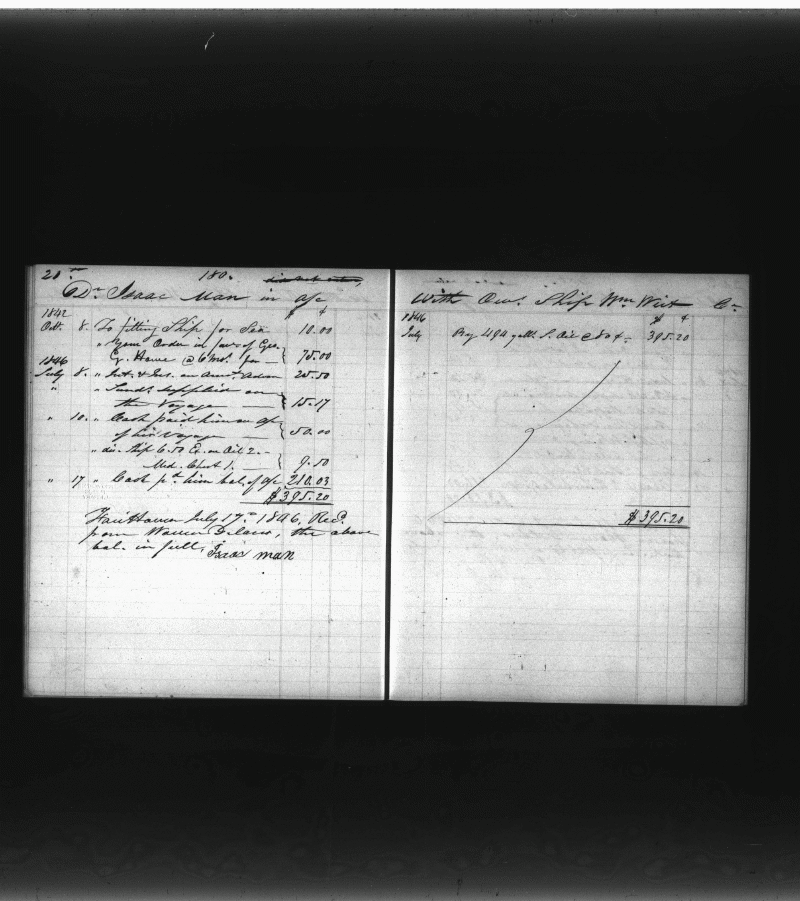 20th 180.
Dr. Isaac Man in a/c
$ ¢
1842
Oct. 8. To fitting Ship for Sea 10.00
" Your Order in fav. of Geo.
G. Howe @ 6 Mos. for — 75.00
1846
July 8. " Int. & Ins. on Amt. Advan 25.50
" " Sunds. supplied on
the Voyage — 15.17
" 10. " Cash paid him on a/c
of his Voyage — 50.00
" dis. Ship 6.50 on Oil 2.—
Med. Chest 1. — 9.50
" 17 " Cash pd. him bal. of a/c 210.03
$395.20
FairHaven July 17th 1846, Recd.
from Warren Delano, the above
bal. in full,
Isaac man
With Ows. Ship Wm. Wirt Cr.
1846 $ ¢
July By 494 galls. S. Oil @ 80¢ — 395.20
$395.20